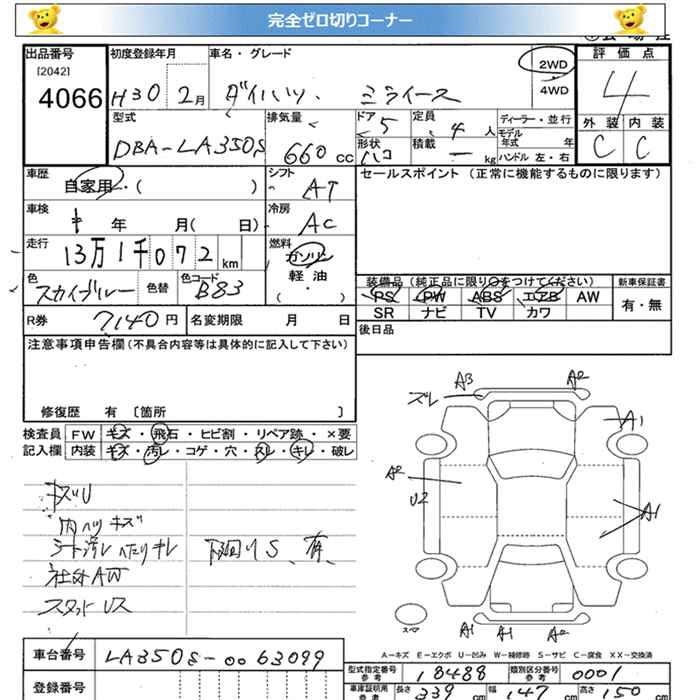 完全ゼロ切りコーナー
出品番号 初度登録年月 車名・グレード 2WD 評価点
[2042]
4066 H30 2月 ダイハツ・ミライース 4WD 4
型式 排気量 ドア 5 定員 4 人 ディーラー・並行 外装 内装
DBA-LA350S 660 cc 形状 ハコ 積載 ー kg モデル年式 年 C C
ハンドル 左・右
車歴 自家用・( ) シフト AT セールスポイント (正常に機能するものに限ります)
車検 年 月( 日) 冷房 AC
走行 13万1千072 km 燃料 ガソリン
軽油
( ・ )
色 スカイブルー 色替 色コード B83 装備品 (純正品に限り○をつけてください) 新車保証書
PS PW ABS エアB AW 有・無
R券 7140 円 名変期限 月 日 SR ナビ TV カワ
注意事項申告欄(不具合内容等は具体的に記入して下さい) 後日品
修復歴 有 〔箇所 〕
検査員 FW キズ・飛石・ヒビ割・リペア跡・×要
記入欄 内装 キズ・汚レ・コゲ・穴・スレ・キレ・破レ
A3 A2
ズレ
A1
A2
U2
A1
キズU
内ハリキズ
シート汚レ ヘたりキレ 下廻りS、有、
社外AW
スタットレス
スペア
A1 A1 A2
A-キズ E-エクボ U-凹み W-補修跡 S-サビ C-腐食 XX-交換済
車台番号 LA350S-0063099
型式指定番号 参考 18488 類別区分番号 参考 0001
登録番号
車庫証明用 参考 長さ 339 cm 幅 147 cm 高さ 150 cm